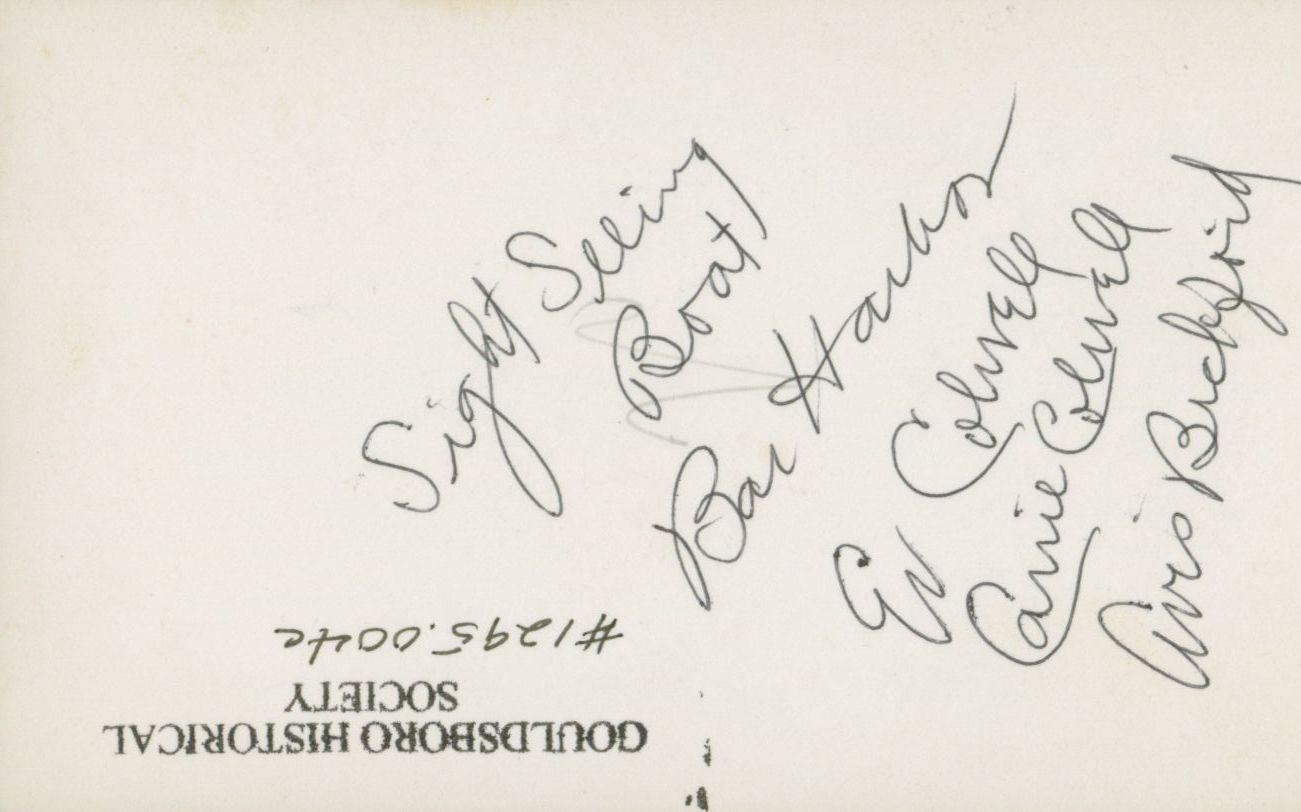 Sight Seeing
Boat
Bar Harbor
Ev Colwell
Carrie Colwell
Avis Bickford
#1295.004c
GOULDSBORO HISTORICAL
SOCIETY